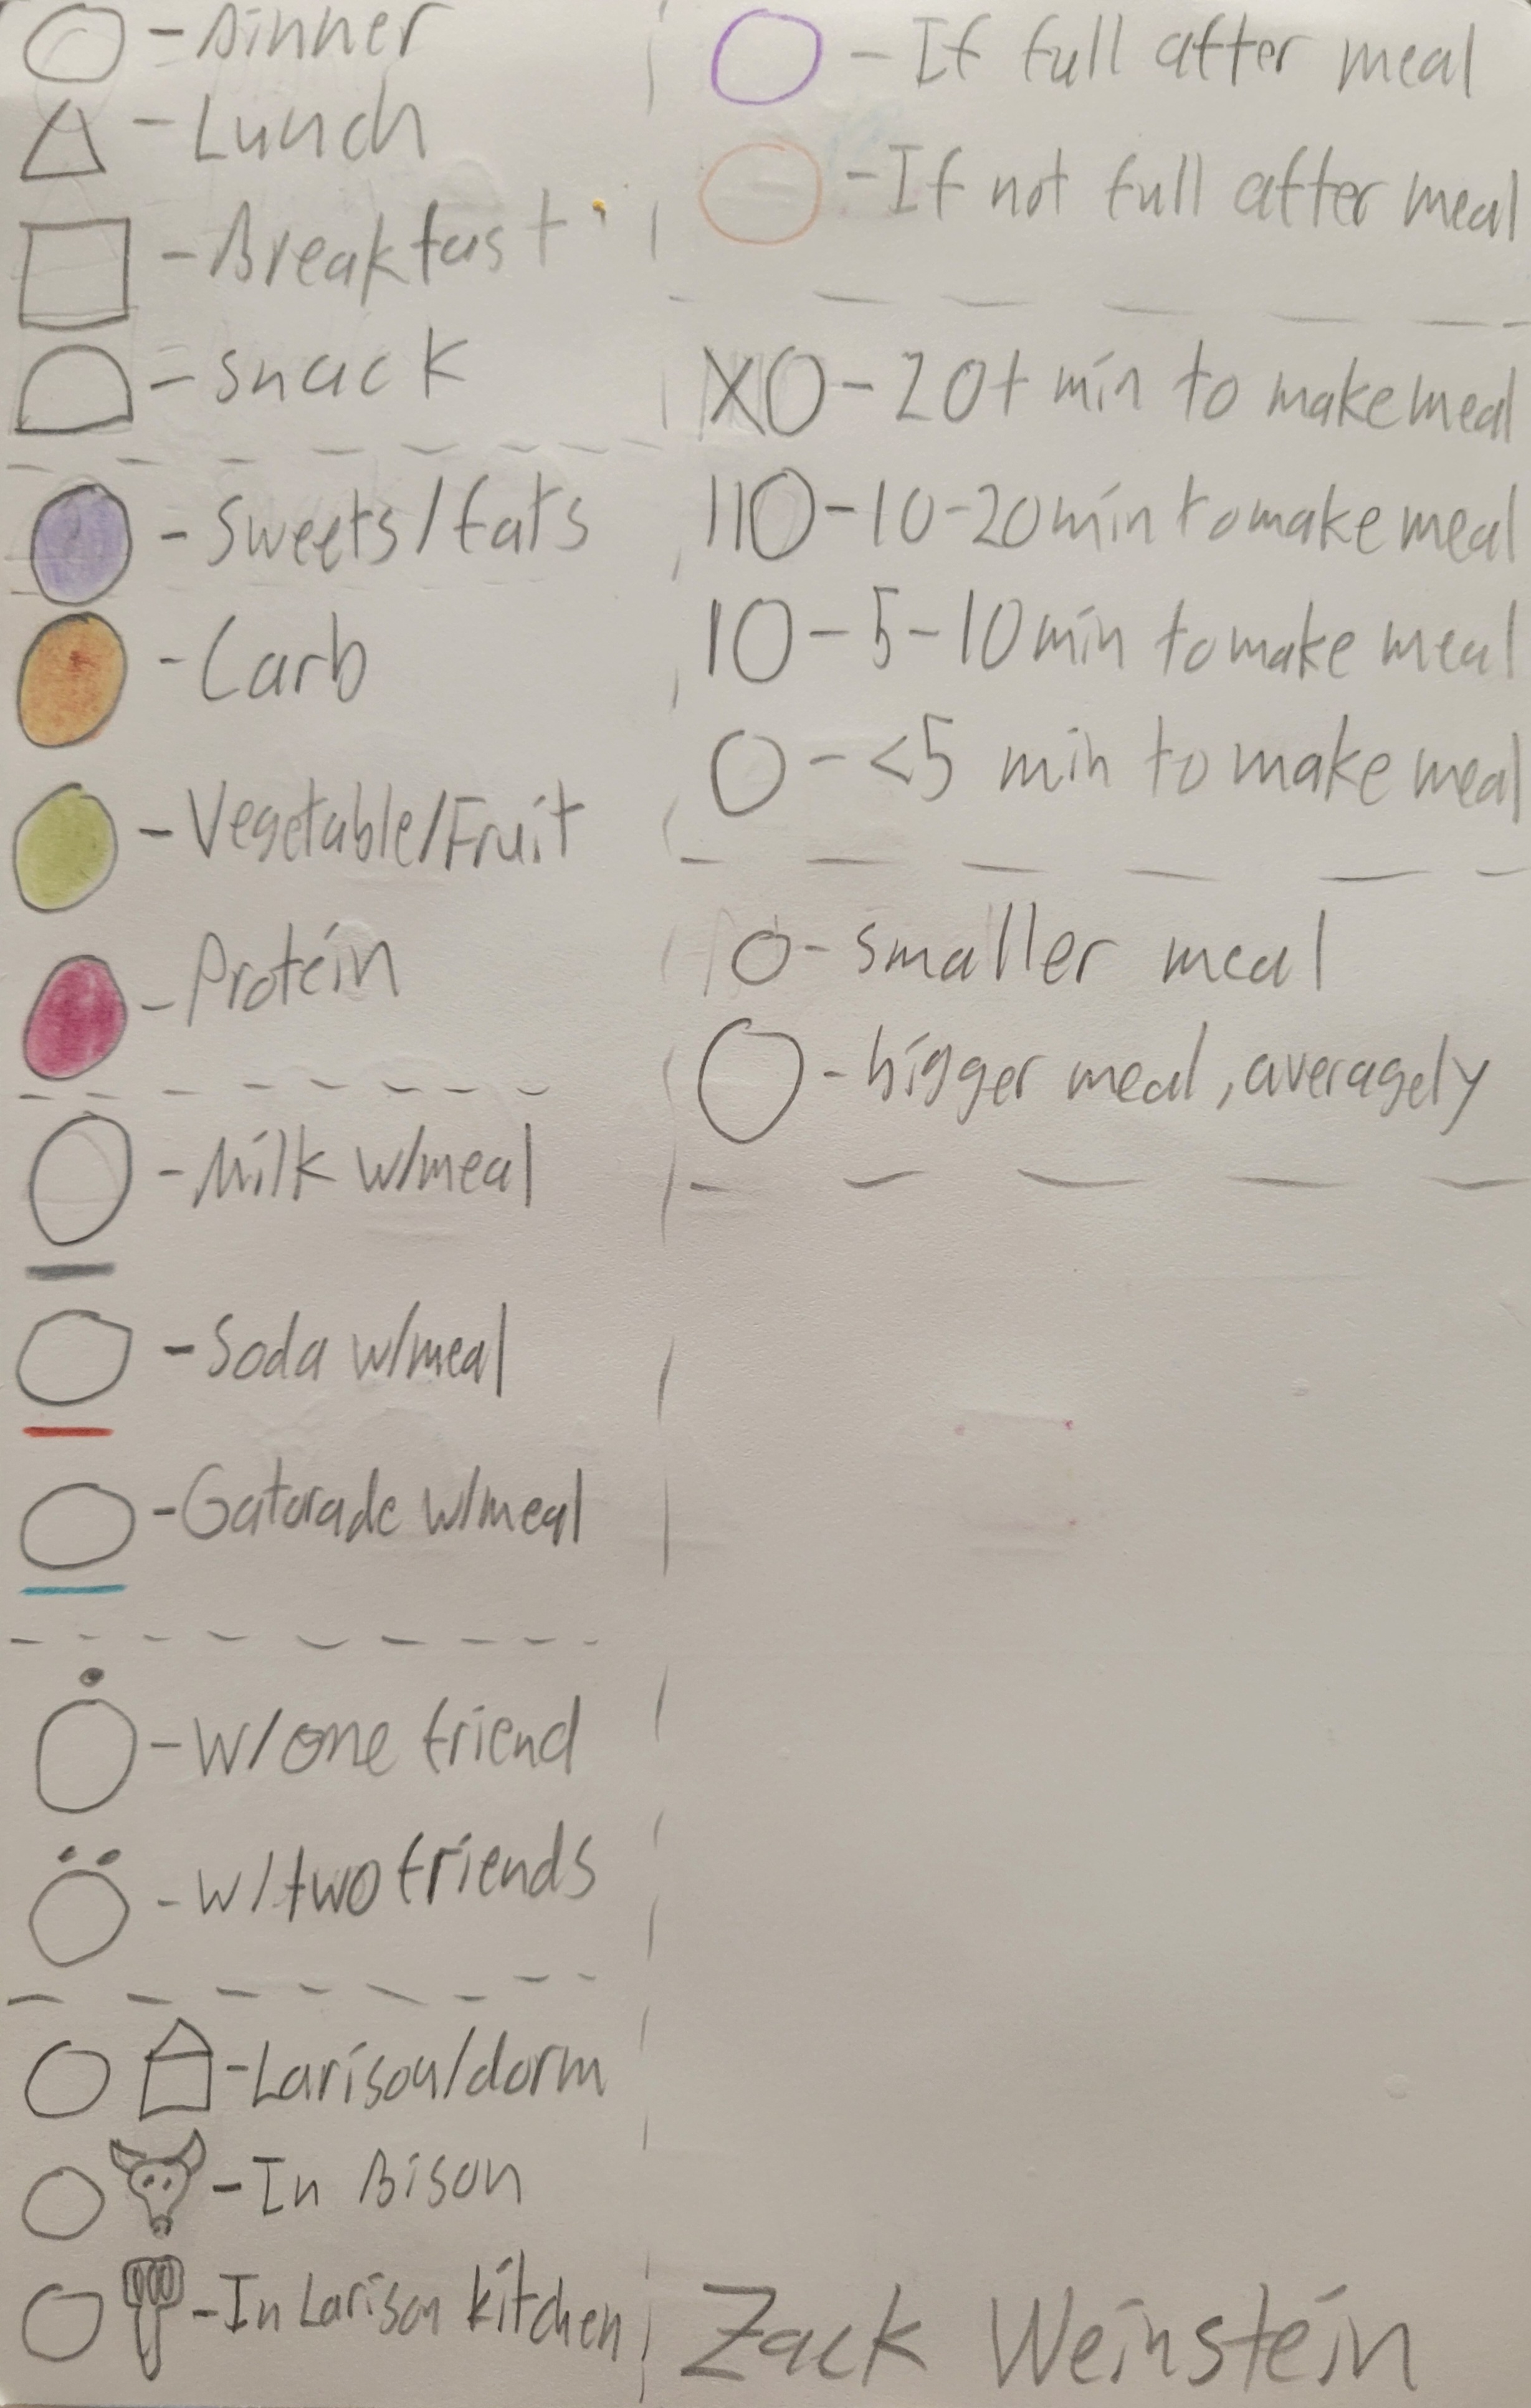 - Dinner
- Lunch
- Breakfast
- snack
- Sweets/fats
- Carb
- Vegetable/Fruit
- Protein
- Milk w/meal
- Soda w/meal
- Gatorade w/meal
- W/one friend
- W/two friends
- Larison/dorm
- In Bison
- In Larison kitchen
- If full after meal
- If not full after meal
XO - 20+ min to make meal
IIO - 10-20 min to make meal
IO - 5-10 min to make meal
O - <5 min to make meal
- smaller meal
- bigger meal, averagely
Zack Weinstein